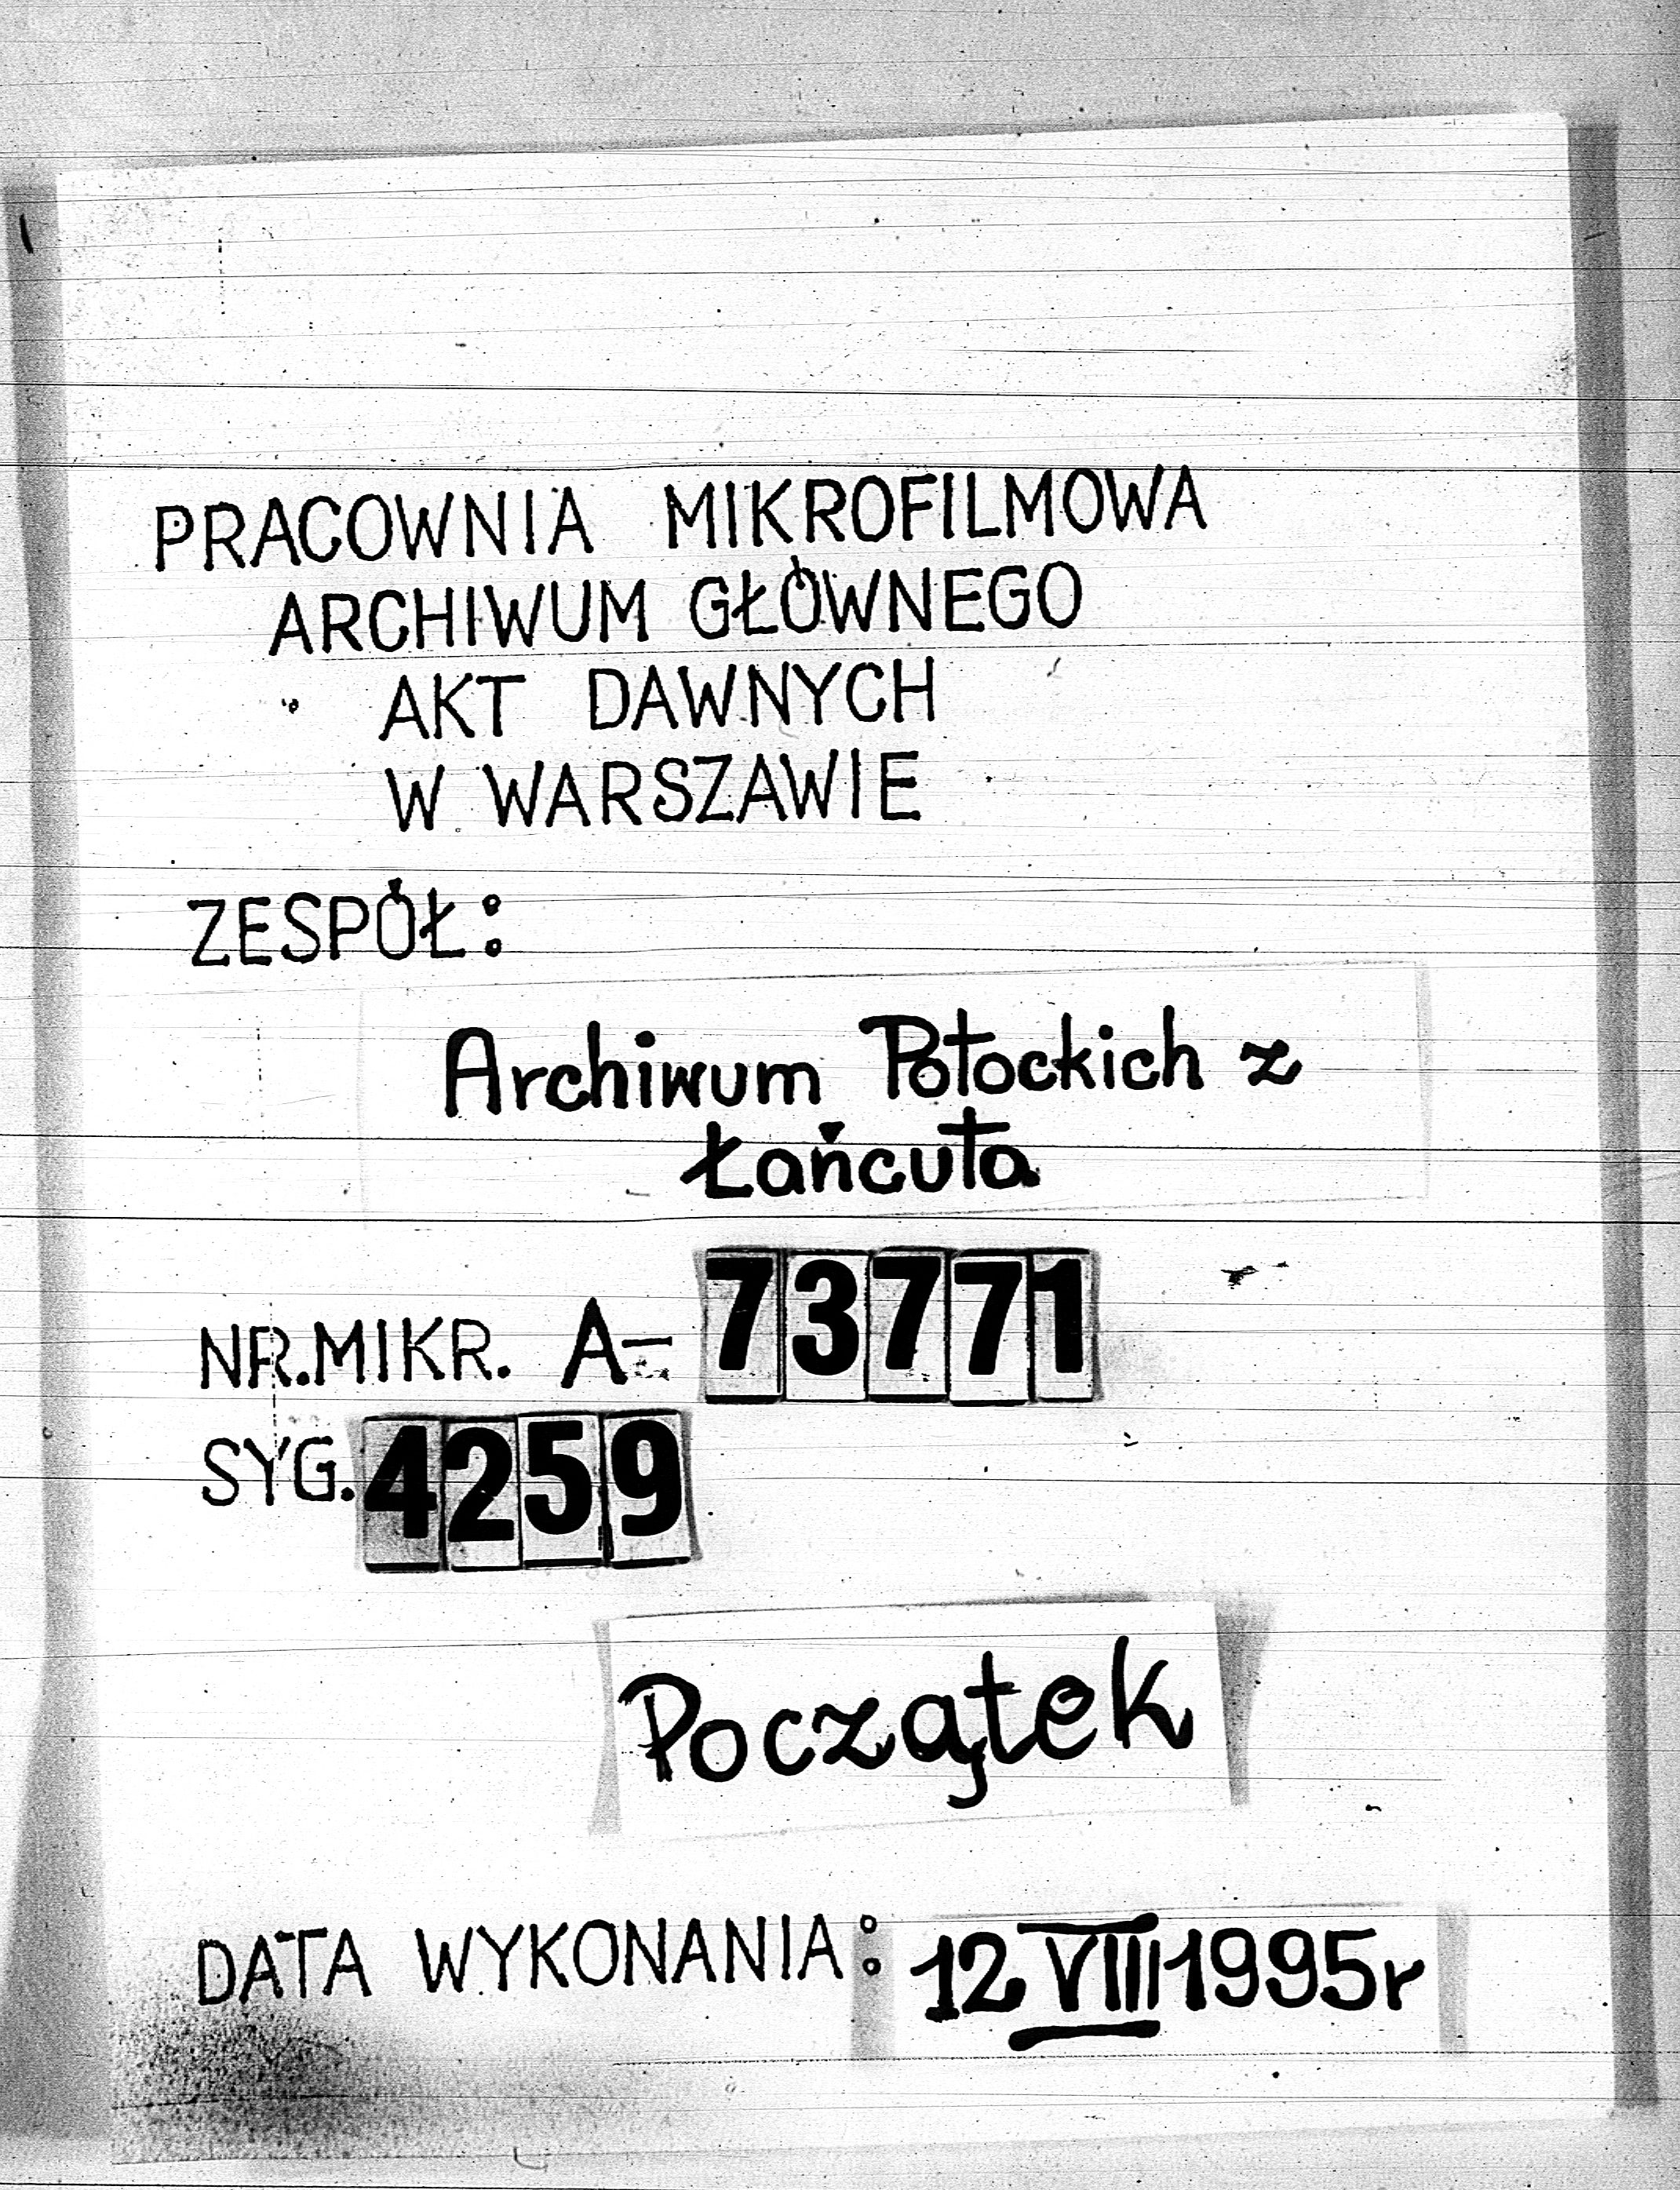 PRACOWNIA MIKROFILMOWA
ARCHIWUM GŁÓWNEGO
AKT DAWNYCH
W WARSZAWIE
ZESPÓŁ:
Archiwum Potockich z
Łańcuta
NR. MIKR. A- 73771
SYG. 4259
Początek
DATA WYKONANIA: 12 VIII 1995r